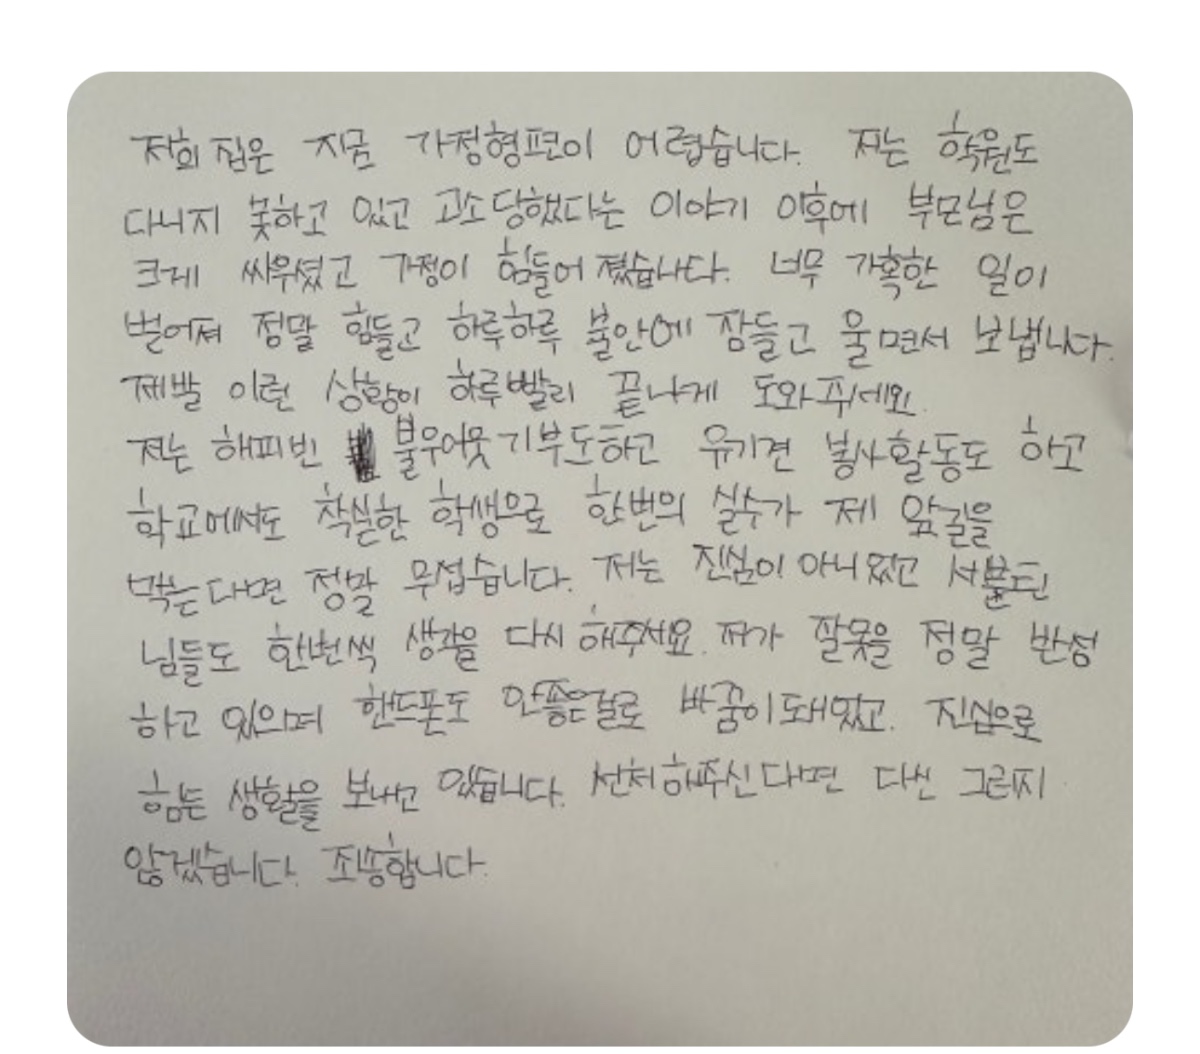 저희 집은 지금 가정형편이 어렵습니다. 저는 학원도
다니지 못하고 있고 고소당했다는 이야기 이후에 부모님은
크게 싸우셨고 가정이 힘들어졌습니다. 너무 가혹한 일이
벌어져 정말 힘들고 하루하루 불안에 잠들고 울면서 보냅니다.
제발 이런 상황이 하루빨리 끝나게 도와주세요.
저는 해피빈 불우이웃기부도하고 유기견 봉사활동도 하고
학교에서도 착실한 학생으로 한번의 실수가 제 앞길을
막는다면 정말 무섭습니다. 저는 진심이 아니였고
님들도 한번씩 생각을 다시 해주세요. 저가 잘못을 정말 반성
하고 있으며 핸드폰도 안좋은걸로 바꿈이돼있고. 진심으로
힘든 생활을 보내고 있습니다. 선처해주신다면 다신 그러지
않겠습니다. 죄송합니다.